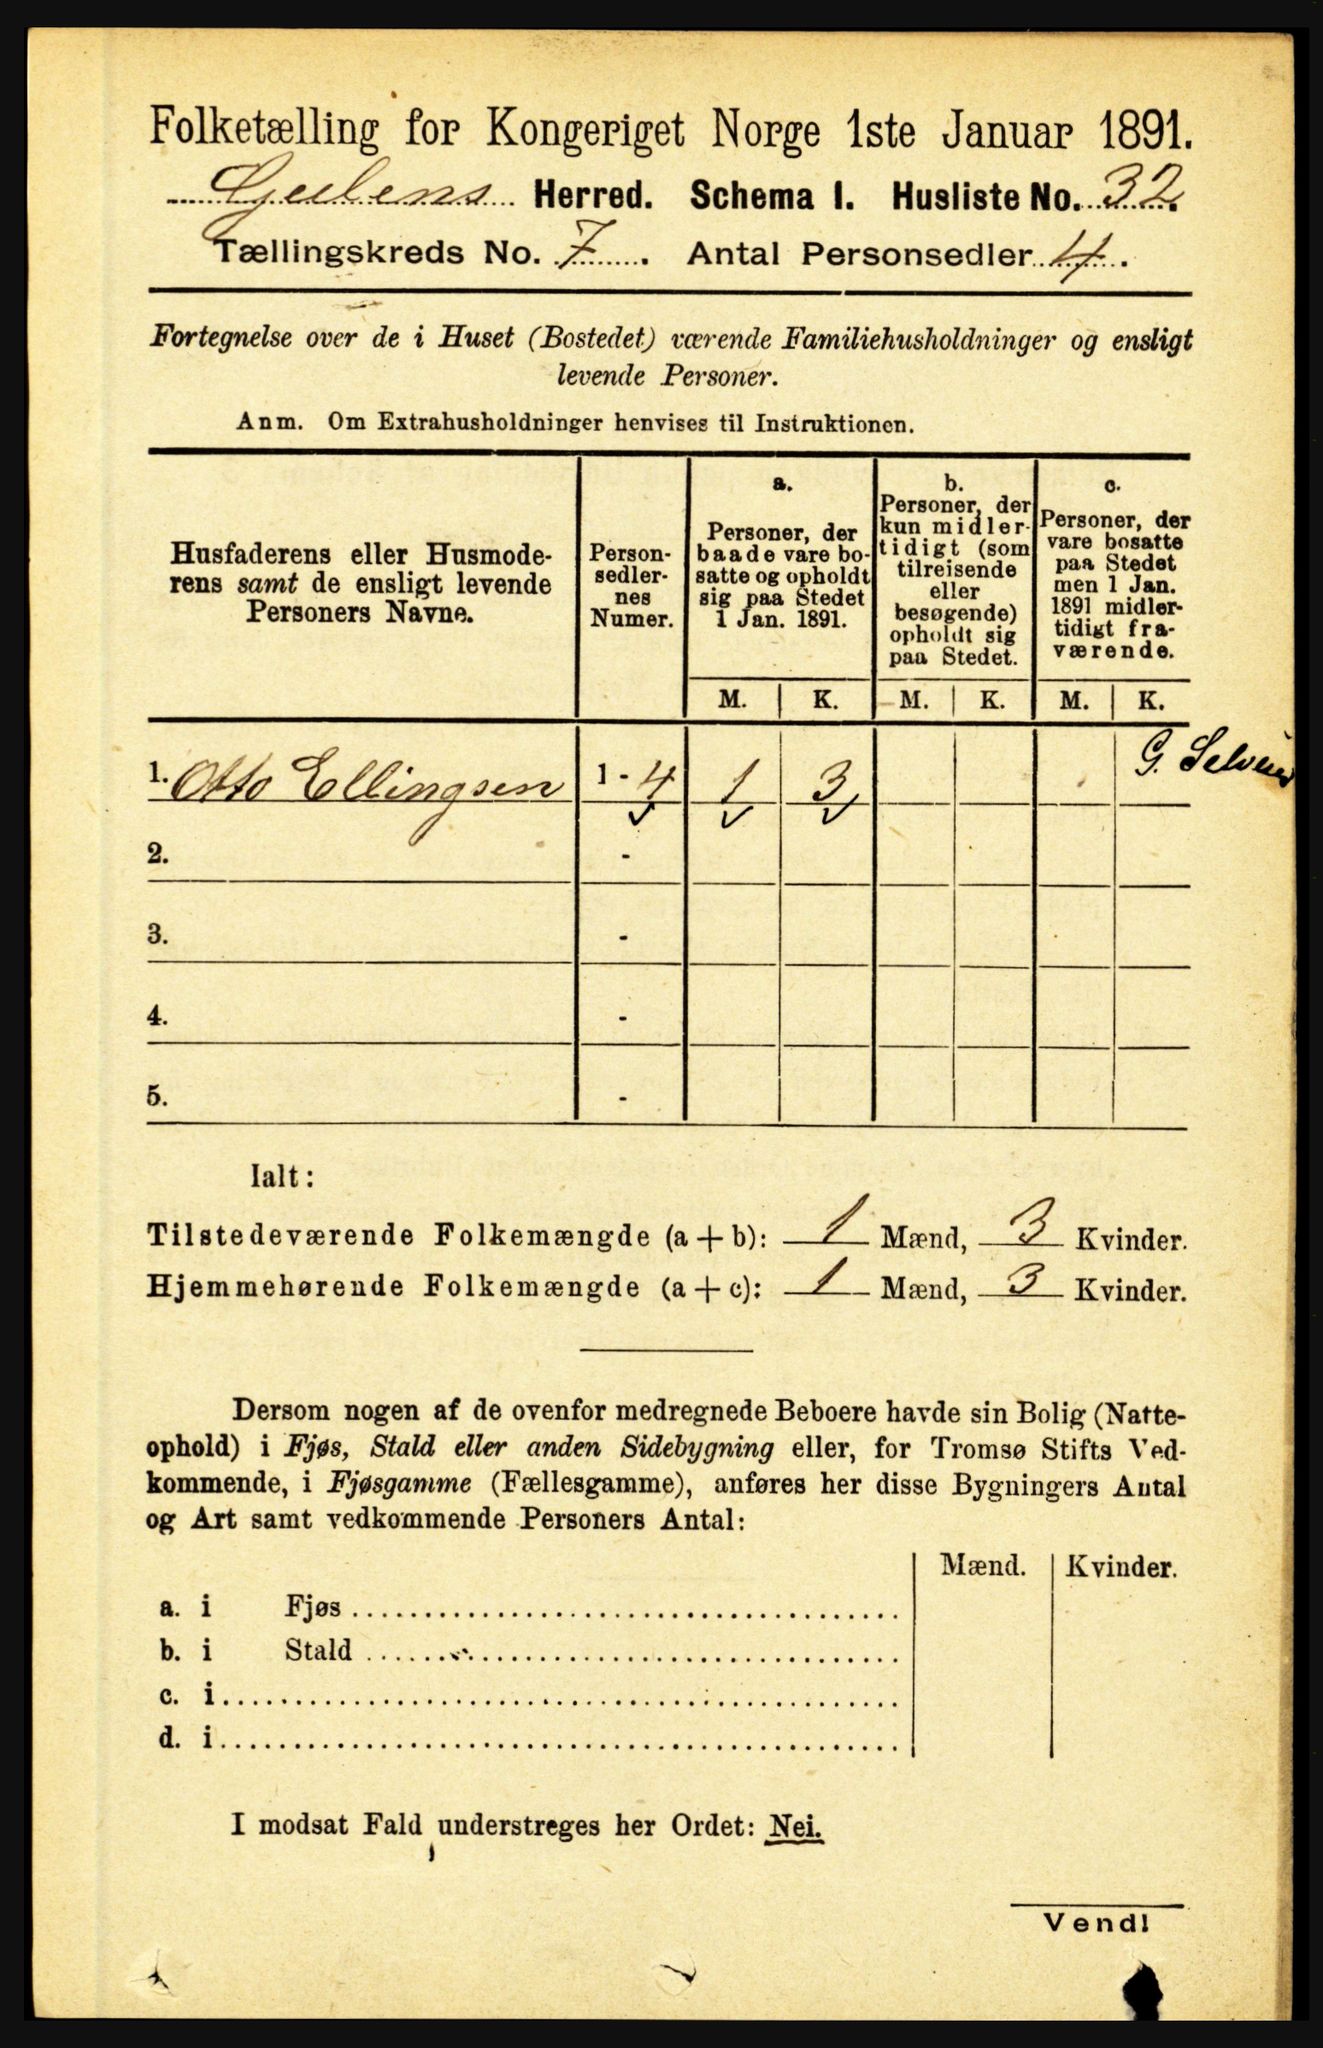 Folketælling for Kongeriget Norge 1ste Januar 1891.
Gulens Herred. Schema I. Husliste No. 32.
Tællingskreds No. 7. Antal Personsedler 4.
Fortegnelse over de i Huset (Bostedet) værende Familiehusholdninger og ensligt
levende Personer.
Anm. Om Extrahusholdninger henvises til Instruktionen.
Husfaderens eller Husmode-
rens samt de ensligt levende
Personers Navne.
Person-
sedler-
nes
Numer.
a.
Personer, der
baade vare bo-
satte og opholdt
sig paa Stedet
1 Jan. 1891.
b.
Personer, der
kun midler-
tidigt (som
tilreisende
eller
besøgende)
opholdt sig
paa Stedet.
c.
Personer, der
vare bosatte
paa Stedet
men 1 Jan.
1891 midler-
tidigt fra-
værende.
M. K. M. K. M. K.
1. Otto Ellingsen 1 - 4 1 3 G.
2. -
3. -
4. -
5. -
Ialt:
Tilstedeværende Folkemængde (a + b): 1 Mænd, 3 Kvinder.
Hjemmehørende Folkemængde (a + c): 1 Mænd, 3 Kvinder.
Dersom nogen af de ovenfor medregnede Beboere havde sin Bolig (Natte-
ophold) i Fjøs, Stald eller anden Sidebygning eller, for Tromsø Stifts Ved-
kommende, i Fjøsgamme (Fællesgamme), anføres her disse Bygningers Antal
og Art samt vedkommende Personers Antal:
Mænd. Kvinder.
a. i Fjøs
b. i Stald
c. i
d. i
I modsat Fald understreges her Ordet: Nei.
Vend!